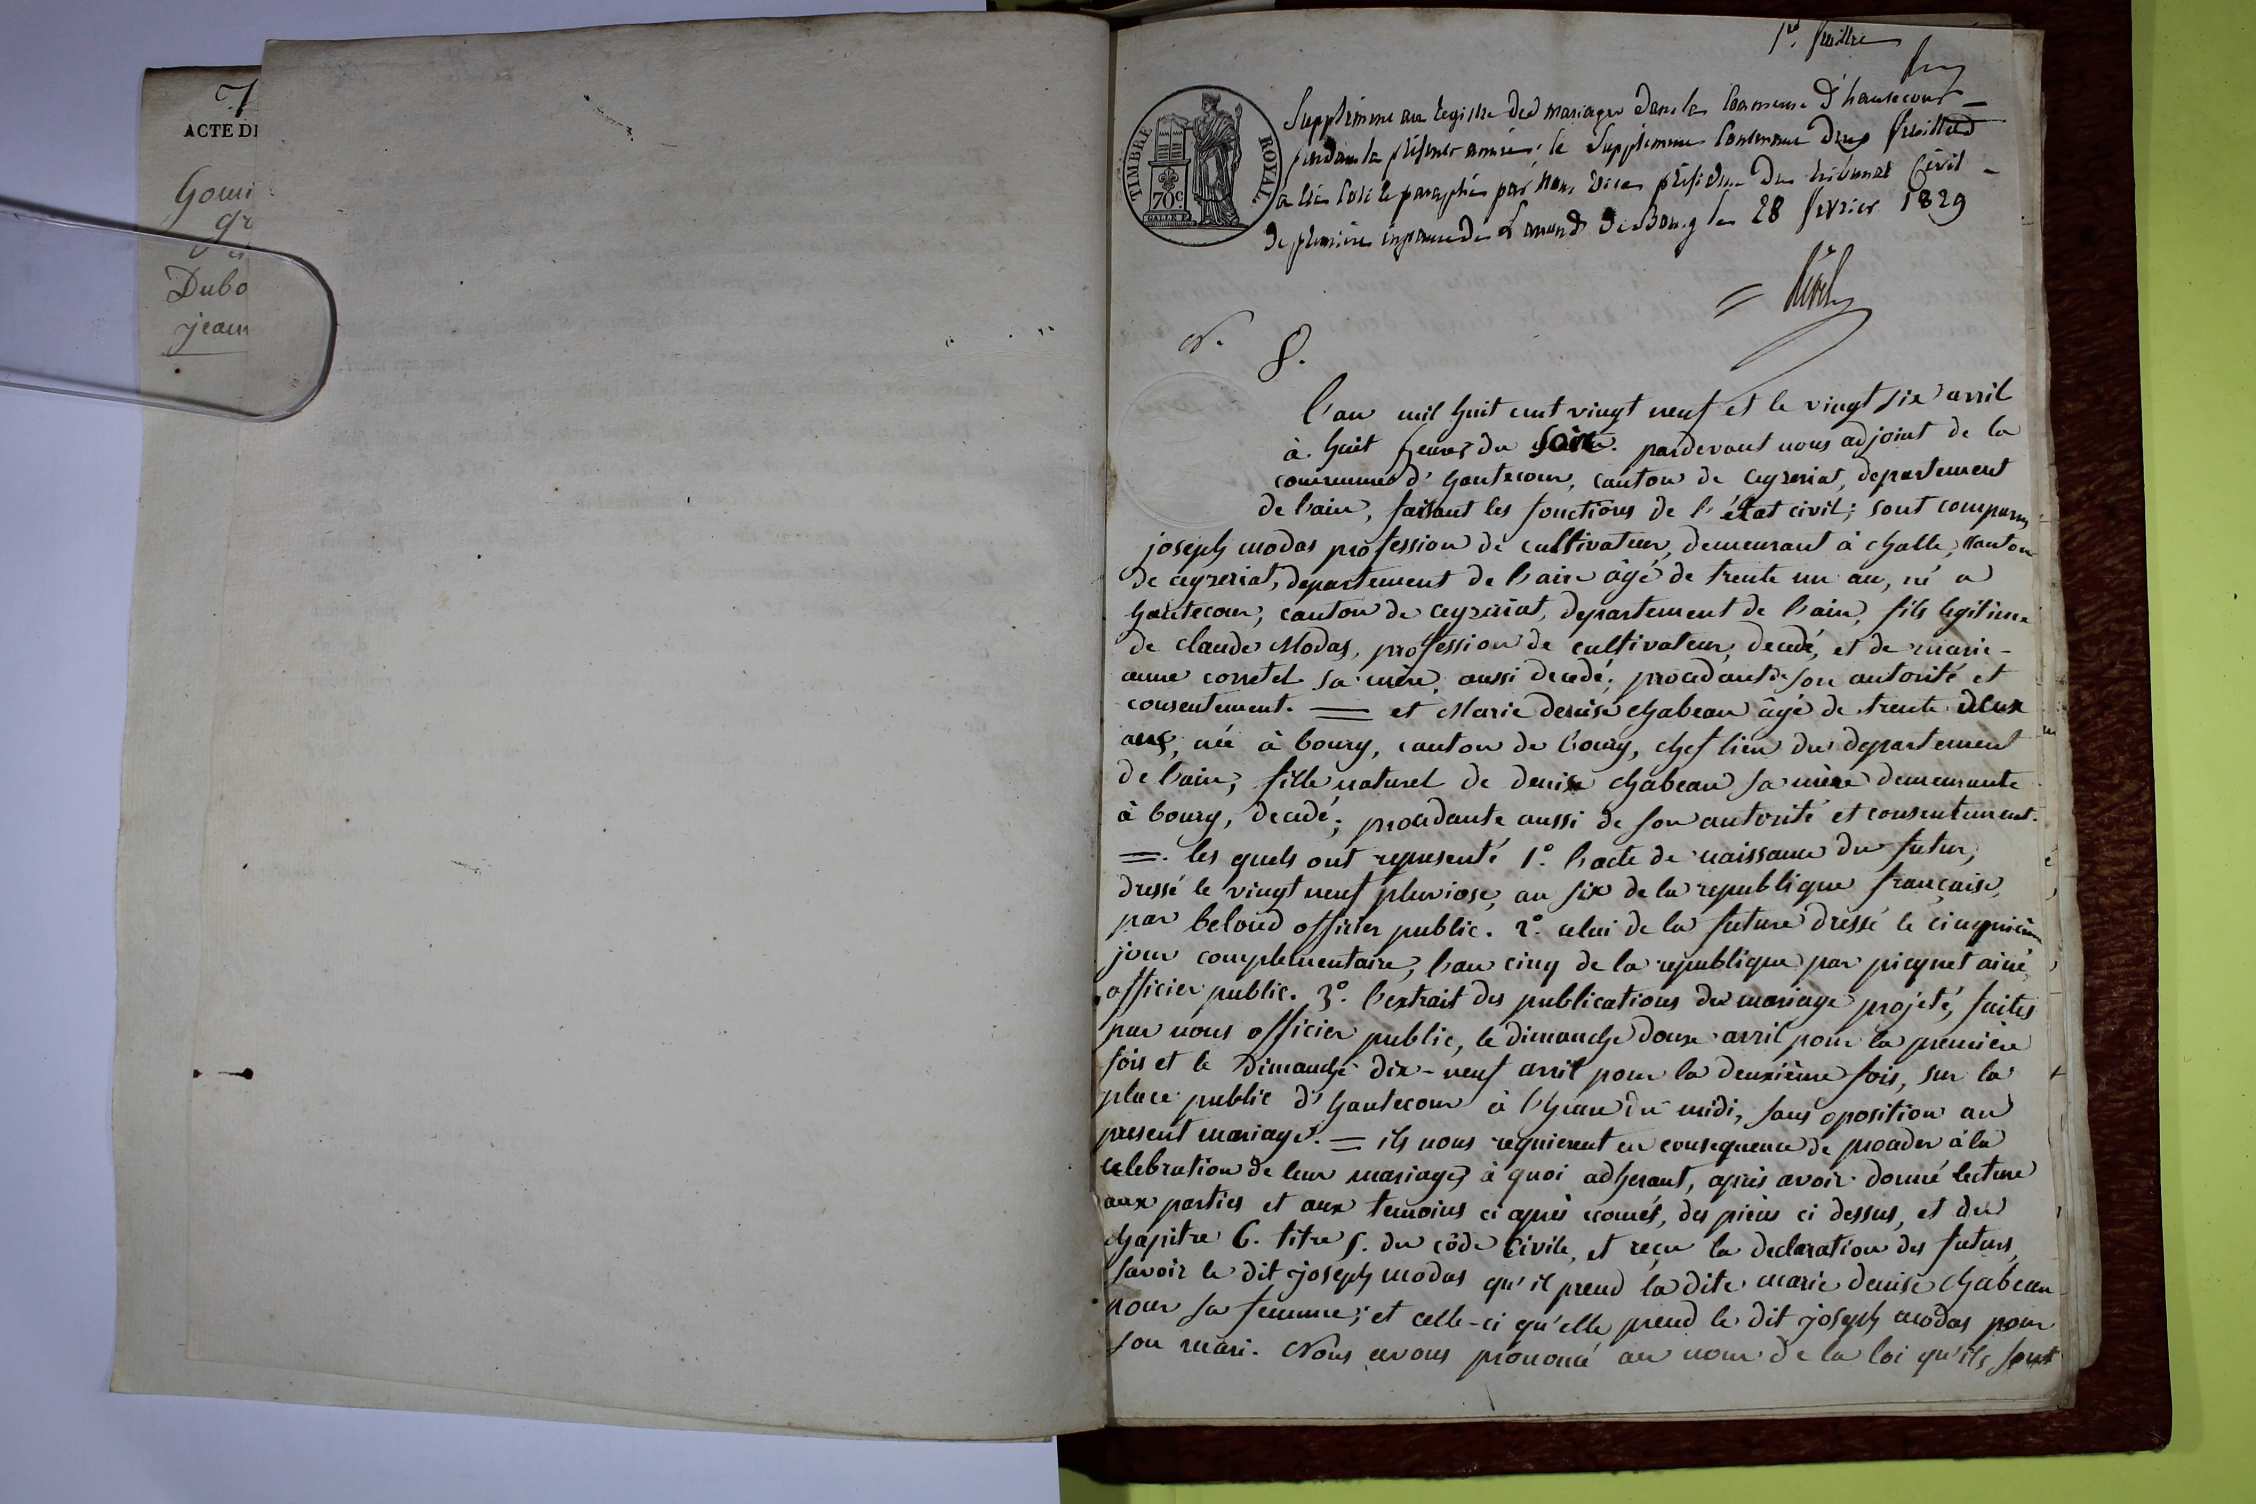 7
ACTE DE
Goui
gr
Dubo
jean
1re feuille
TIMBRE ROYAL
70c.
Supplément au registre des mariages dans la Commune d'hautecour
pendant la présente année. le Supplément Contenant deux feuilles
a été Coté et paraphé par Nous vice président du tribunal Civil
de première instance de L'arrond. de Bourg le 28 février 1829
N.
8.
l'an mil huit cent vingt neuf et le vingt six avril
à huit heures du soir. pardevant nous adjoint de la
commune d'hautecour, canton de ceyzeriat, departement
de l'ain, faisant les fonctions de l'état civil; sont comparus
joseph modas profession de cultivateur, demeurant à challe, canton
de ceyzeriat, departement de l'ain âgé de trente un an, né a
hautecour, canton de ceyzeriat, departement de l'ain, fils legitime
de claude Modas, profession de cultivateur, decedé, et de marie-
anne corretel sa mère, aussi decedé; procedant de son autorité et
consentement. = et Marie denise chabeau âgé de trente deux
ans, née à bourg, canton de bourg, chef lieu du departement
de l'ain, fille naturel de denise chabeau sa mère demeurante
à bourg, decedé; procedante aussi de son autorité et consentement.
=. les quels ont representé 1º. l'acte de naissance du futur,
dressé le vingt neuf pluviose, an six de la republique française,
par beloud officier public. 2º. celui de la future dressé le cinquième
jour complementaire, l'an cinq de la republique par picquet ainé
officier public. 3º. l'extrait des publications du mariage projeté, faites
par nous officier public, le dimanche douze avril pour la première
fois et le Dimanche dix-neuf avril pour la deuxième fois, sur la
place public d'hautecour à l'heure du midi, sans oposition au
present mariage. = ils nous requierent en consequence de proceder à la
celebration de leur mariage, à quoi adherant, après avoir donné lecture
aux parties et aux temoins ci après només, des pièces ci dessus, et du
chapitre 6. titre 5. du côde Civile, et reçu la declaration des futurs,
savoir le dit joseph modas qu'il prend la dite marie denise chabeau
pour sa femme; et celle-ci qu'elle prend le dit joseph modas pour
son mari. Nous avons prononcé au nom de la loi qu'ils sont